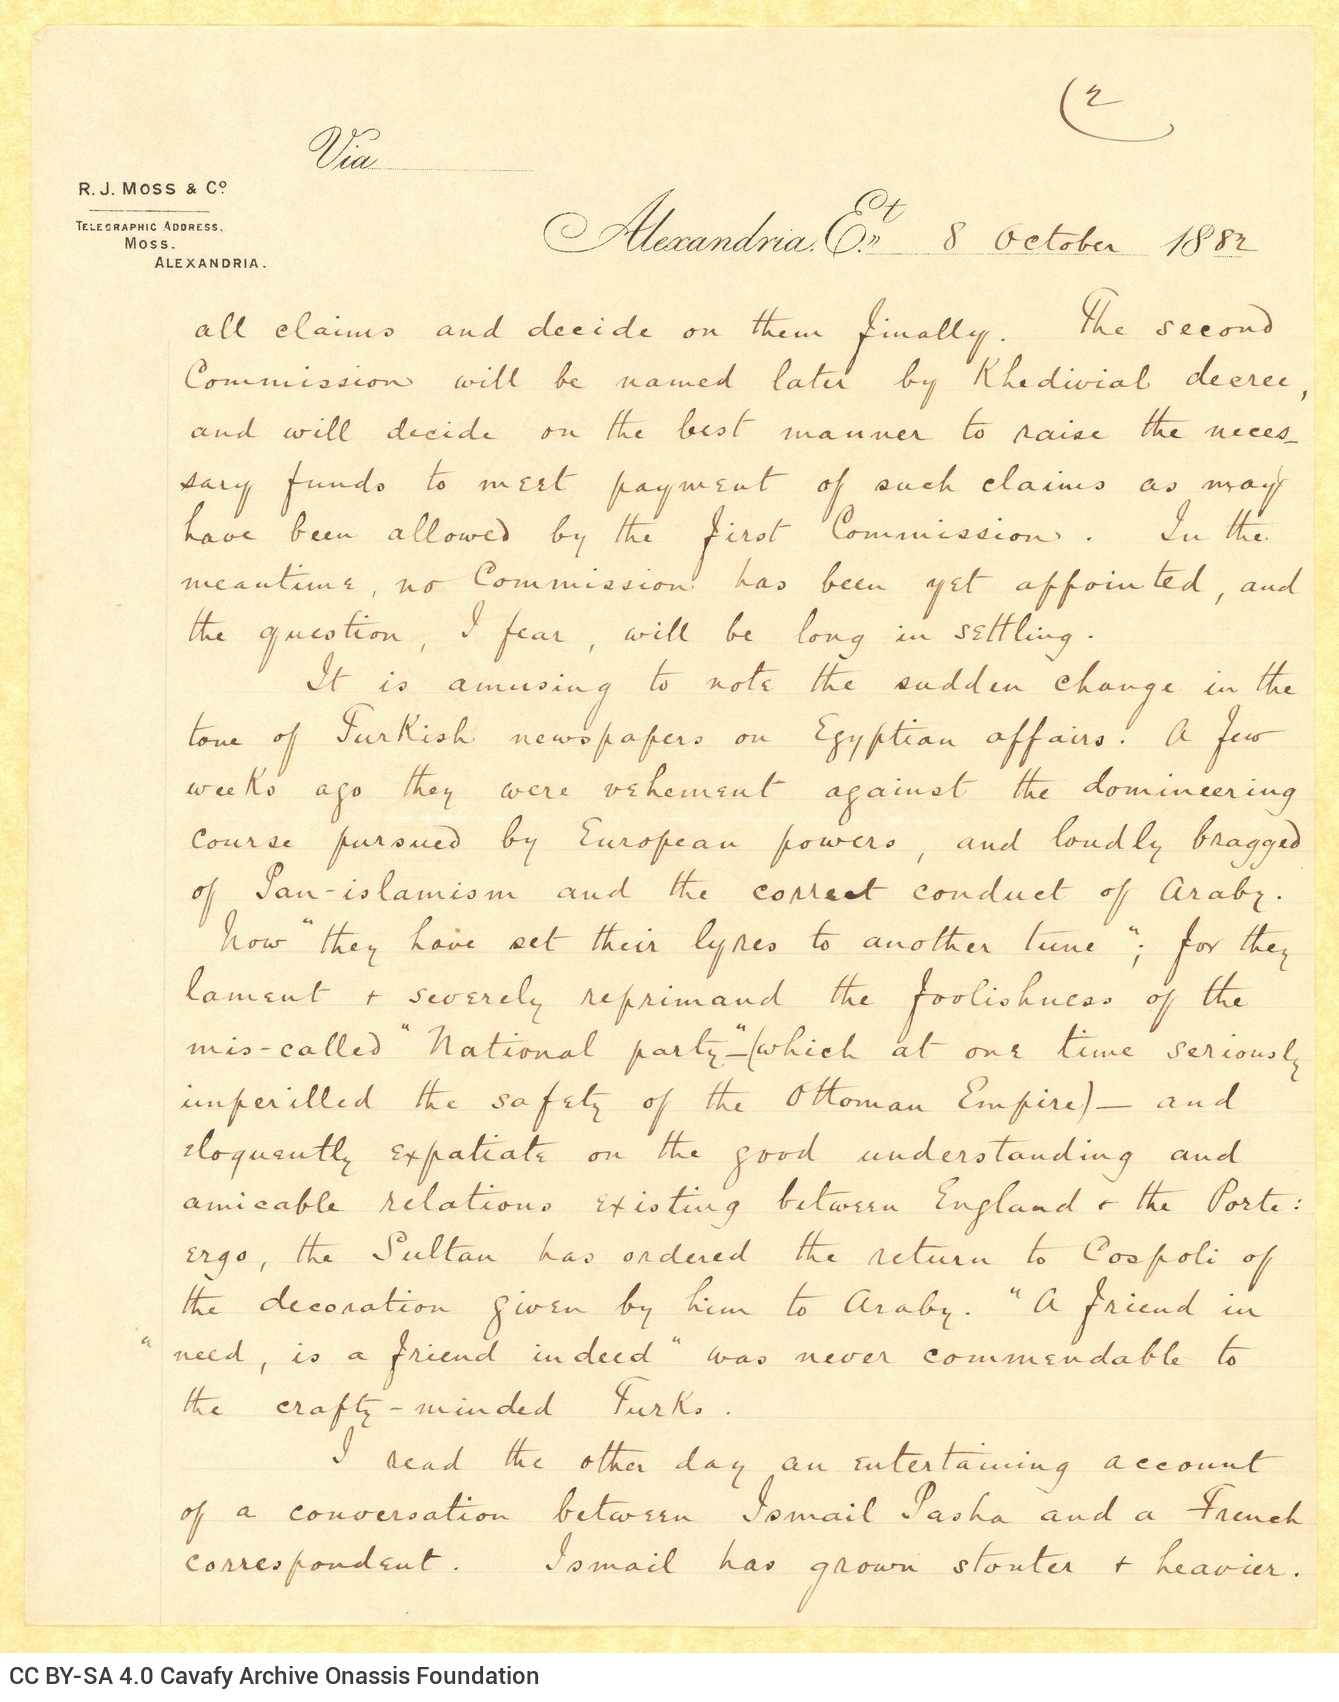 (2
Via
R. J. MOSS & Cº
TELEGRAPHIC ADDRESS,
MOSS.
ALEXANDRIA.
Alexandria. Et. 8 October 1882
all claims and decide on them finally. The second
Commission will be named later by Khedivial decree,
and will decide on the best manner to raise the neces_
sary funds to meet payment of such claims as may
have been allowed by the first Commission. In the
meantime, no Commission has been yet appointed, and
the question, I fear, will be long in settling.
It is amusing to note the sudden change in the
tone of Turkish newspapers on Egyptian affairs. A few
weeks ago they were vehement against the domineering
course pursued by European powers, and loudly bragged
of Pan-islamism and the correct conduct of Araby.
Now "they have set their lyres to another tune"; for they
lament + severely reprimand the foolishness of the
mis-called "National party"—(which at one time seriously
imperilled the safety of the Ottoman Empire)— and
eloquently expatiate on the good understanding and
amicable relations existing between England + the Porte:
ergo, the Sultan has ordered the return to Cospoli of
the decoration given by him to Araby. "A friend in
"need, is a friend indeed" was never commendable to
the crafty-minded Turks.
I read the other day an entertaining account
of a conversation between Ismail Pasha and a French
correspondent. Ismail has grown stouter + heavier.
CC BY-SA 4.0 Cavafy Archive Onassis Foundation